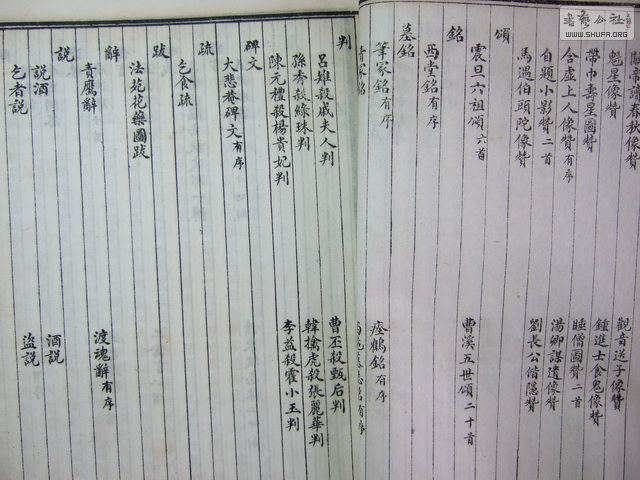 讀春秋像贊 觀音送子像贊
魁星像贊 鍾進士食鬼像贊
帶巾壽星圖贊 睡僧圖贊二首
含虛上人像贊有序 湯卿謀遺像贊
自題小影贊二首 劉長公偕隱贊
馬遇伯頭陀像贊
頌
震旦六祖頌六首 曹溪五世頌二十首
銘
西堂銘有序
墓銘
筆冢銘有序 瘞鶴銘有序
青冢銘 墓志銘有序
判
呂雉殺戚夫人判 曹丕殺甄后判
孫秀殺綠珠判 韓擒虎殺張麗華判
陳元禮殺楊貴妃判 李益殺霍小玉判
碑文
大悲菴碑文有序
疏
乞食疏
跋
法苑花藥圖跋
辭
責鷹辭 渡魂辭有序
說
說酒 酒說
乞者說 盜說
WWW.SHUFA.ORG